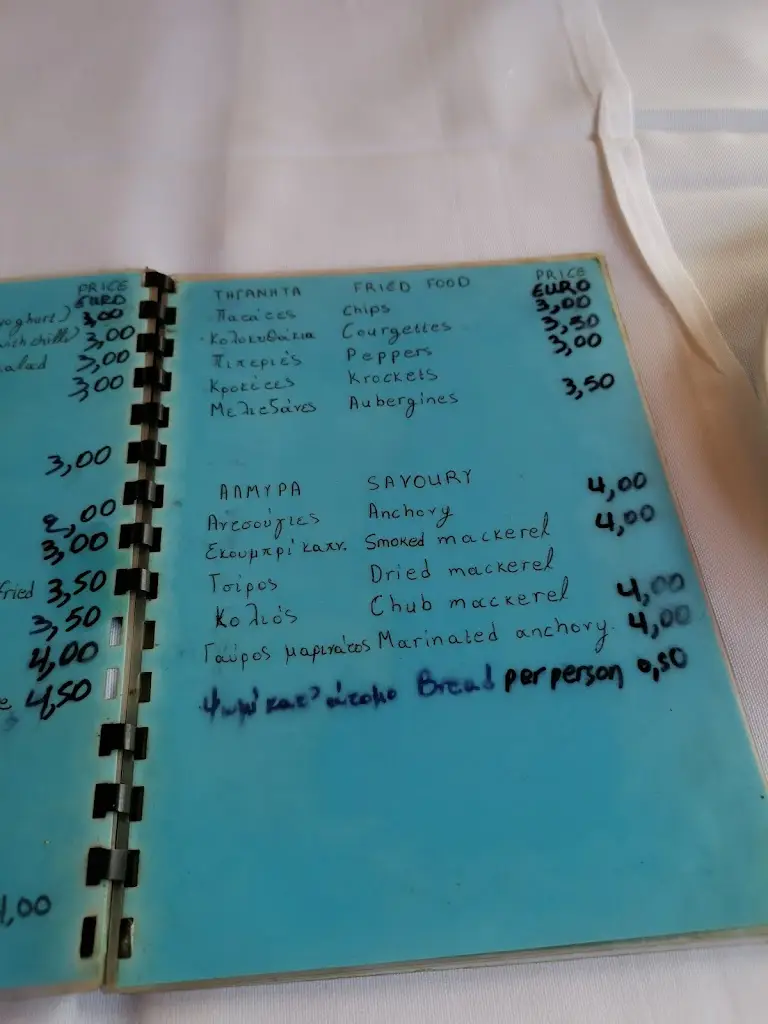 PRICE
EURO
yoghurt) 3,00
with chilli) 3,00
salad 3,00
3,00
3,00
2,00
3,00
fried 3,50
3,50
4,00
4,50
,00
ΤΗΓΑΝΗΤΑ FRIED FOOD PRICE EURO
Πατάτες Chips 3,00
Κολοκυθάκια Courgettes 3,50
Πιπεριές Peppers 3,00
Κροκέτες Krockets
Μελιτζάνες Aubergines 3,50
ΑΛΜΥΡΑ SAVOURY
Αντσούγιες Anchory 4,00
Σκουμπρί καπν. Smoked mackerel 4,00
Τσίρος Dried mackerel
Κολιός Chub mackerel 4,00
Γαύρος μαρινάτος Marinated anchory. 4,00
Ψωμί κατ' άτομο Bread per person 0,50